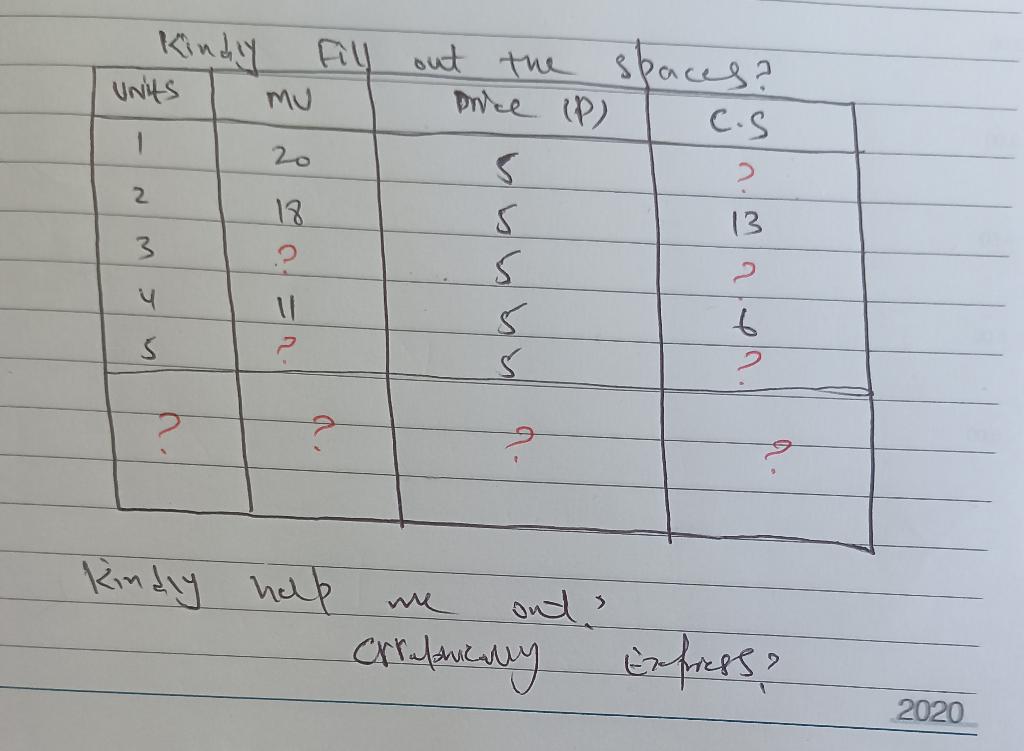 Kindly Fill out the spaces?
Units MU Price (P) C.S
1 20 5 ?
2 18 5 13
3 ? 5 ?
4 11 5 6
5 ? 5 ?
? ? ? ?
Kindly help me out?
Graphically Express?
2020